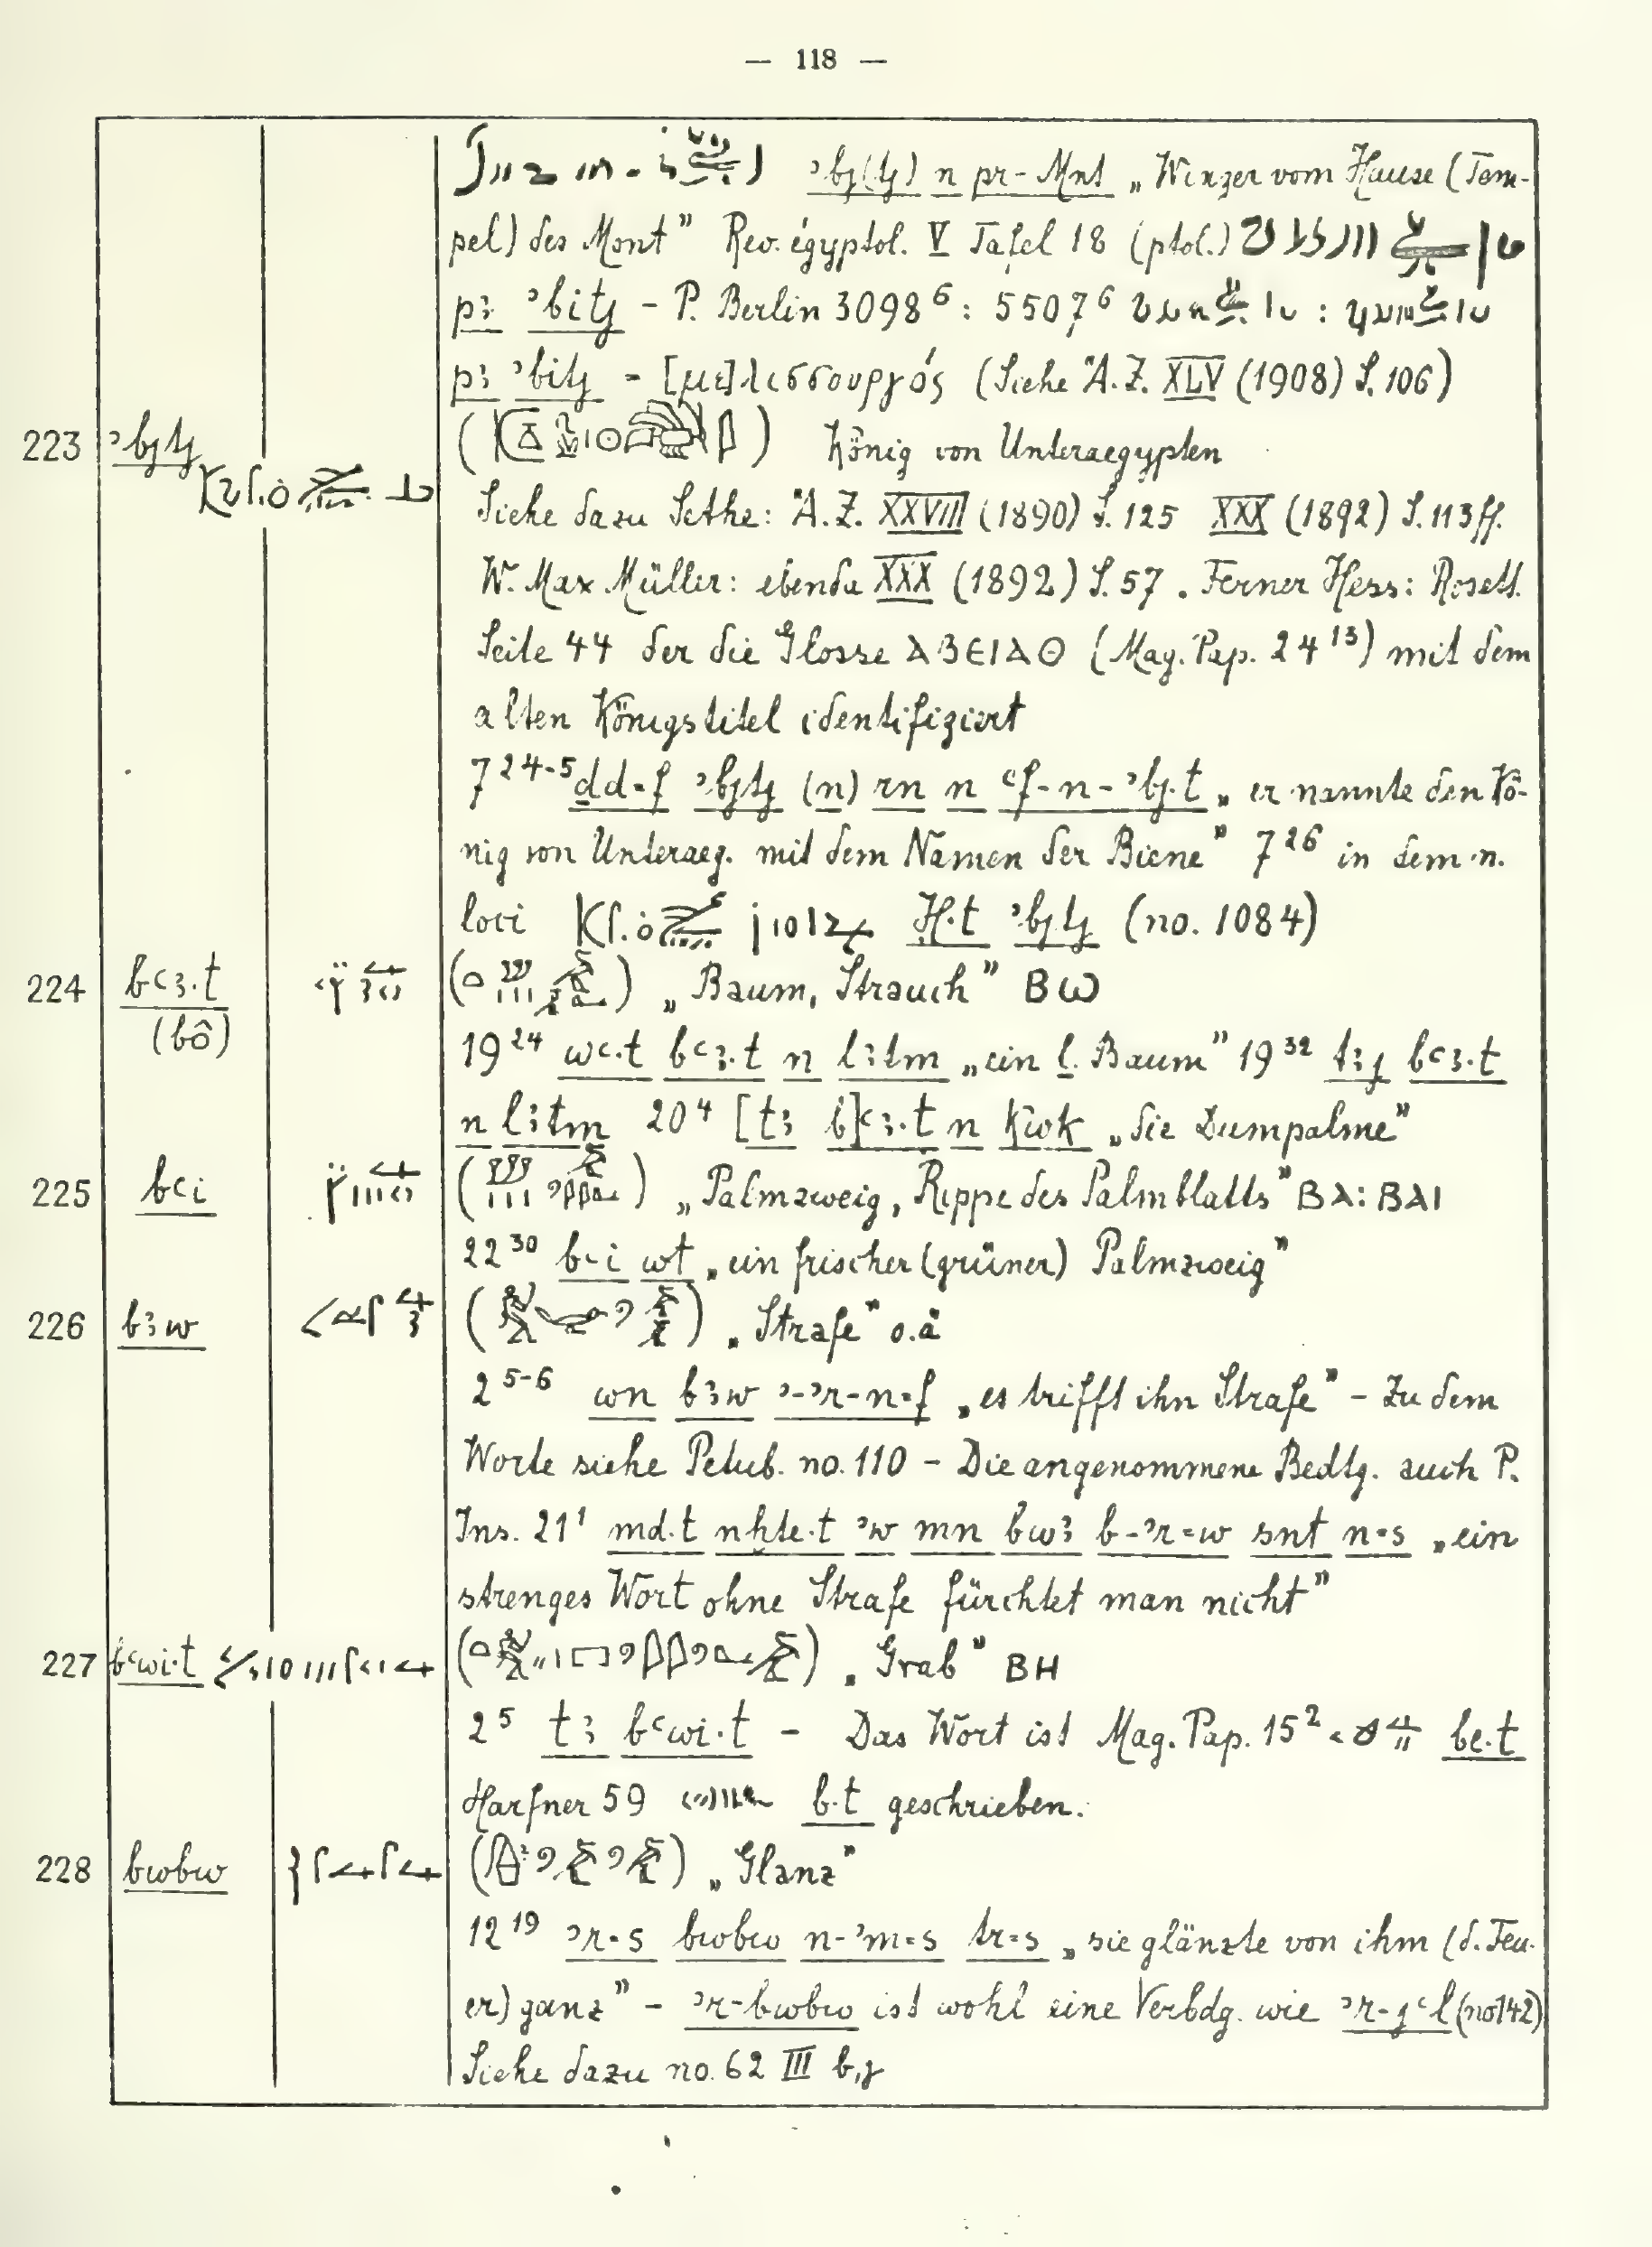 — 118 —
ʾbj(tj) n pr-Mnt „Winzer vom Hause (Tem-
pel) des Mont" Rev. égyptol. V Tafel 18 (ptol.)
pꜣ ʾbitj – P. Berlin 3098⁶ : 5507⁶
pꜣ ʾbitj = [με]λισσουργός (Siehe Ä.Z. XLV (1908) S. 106)
223 ʾbjtj König von Unteraegypten
Siehe dazu Sethe: Ä.Z. XXVIII (1890) S. 125 XXX (1892) S. 113ff.
W. Max Müller: ebenda XXX (1892) S. 57. Ferner Hess: Rosett.
Seite 44 der die Glosse ⲀⲂⲈⲒⲀⲐ (Mag. Pap. 24¹³) mit dem
alten Königstitel identifiziert
7²⁴⁻⁵ ḏd=f ʾbjtj (n) rn n ꜥf-n-ʾbj.t „er nannte den Kö-
nig von Unteraeg. mit dem Namen der Biene" 7²⁶ in dem n.
loci Ḥ.t ʾbjtj (no. 1084)
224 bꜥꜣ.t „Baum, Strauch" ⲂⲰ
(bô)
19²⁴ wꜥ.t bꜥꜣ.t n lꜣtm „ein l. Baum" 19³² tꜣj bꜥꜣ.t
n lꜣtm 20⁴ [tꜣ b]ꜥꜣ.t n Kwk „die Dumpalme"
225 bꜥi „Palmzweig, Rippe des Palmblatts" ⲂⲀ: ⲂⲀⲒ
22³⁰ bꜥi wt „ein frischer (grüner) Palmzweig"
226 bꜣw „Strafe" o.ä
2⁵⁻⁶ wn bꜣw ʾ-ʾr-n=f „es trifft ihn Strafe" – Zu dem
Worte siehe Petub. no. 110 – Die angenommene Bedtg. auch P.
Ins. 21¹ md.t nḫte.t ʾw mn bwꜣ b-ʾr=w snt n=s „ein
strenges Wort ohne Strafe fürchtet man nicht"
227 bꜥwi.t „Grab" ⲂⲎ
2⁵ tꜣ bꜥwi.t – Das Wort ist Mag. Pap. 15² be.t
Harfner 59 b.t geschrieben.
228 bwbw „Glanz"
12¹⁹ ʾr=s bwbw n-ʾm=s tr=s „sie glänzte von ihm (d. Feu-
er) ganz" – ʾr-bwbw ist wohl eine Verbdg. wie ʾr-jꜥl (no 142)
Siehe dazu no. 62 III b,γ